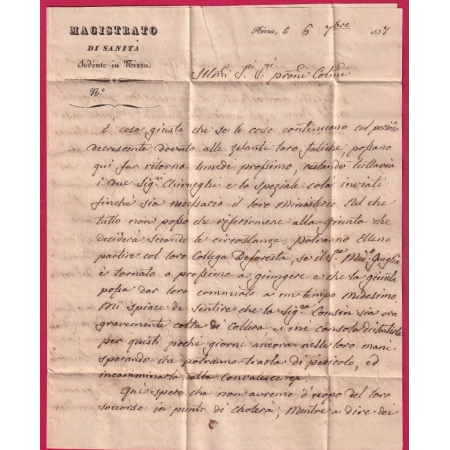 MAGISTRATO
DI SANITÀ
Sedente in Nizza.
Nizza, li 6 7bre 1837
N.°
È cosa giusta che se le cose continuano col
decrescente dovuto alle zelanti loro fatiche, possano
qui far ritorno lunedì prossimo, restando tuttavia
i due Sig.ri Chirurghi e lo speziale colà inviati
finché sia necessario il loro Ministero. Nel che
tutto non posso che riferirmene alla Giunta che
deciderà secondo le circostanze, potranno Elleno
partire col loro Collega Deforesta, se il
è tornato o prossimo a giungere e che la giunta
possa dar loro commiato a un tempo medesimo.
Mi spiace di sentire che la Sig.ra Cousin sia ora
gravemente colta di Collera, e mi consola di sentirla
per questi pochi giorni ancora nelle loro mani
sperando che potranno trarla di pericolo, ed
incamminarla alla Convalescenza.
Qui spero che non avremo d'uopo del loro
soccorso in punto di cholera, mentre a dire dei